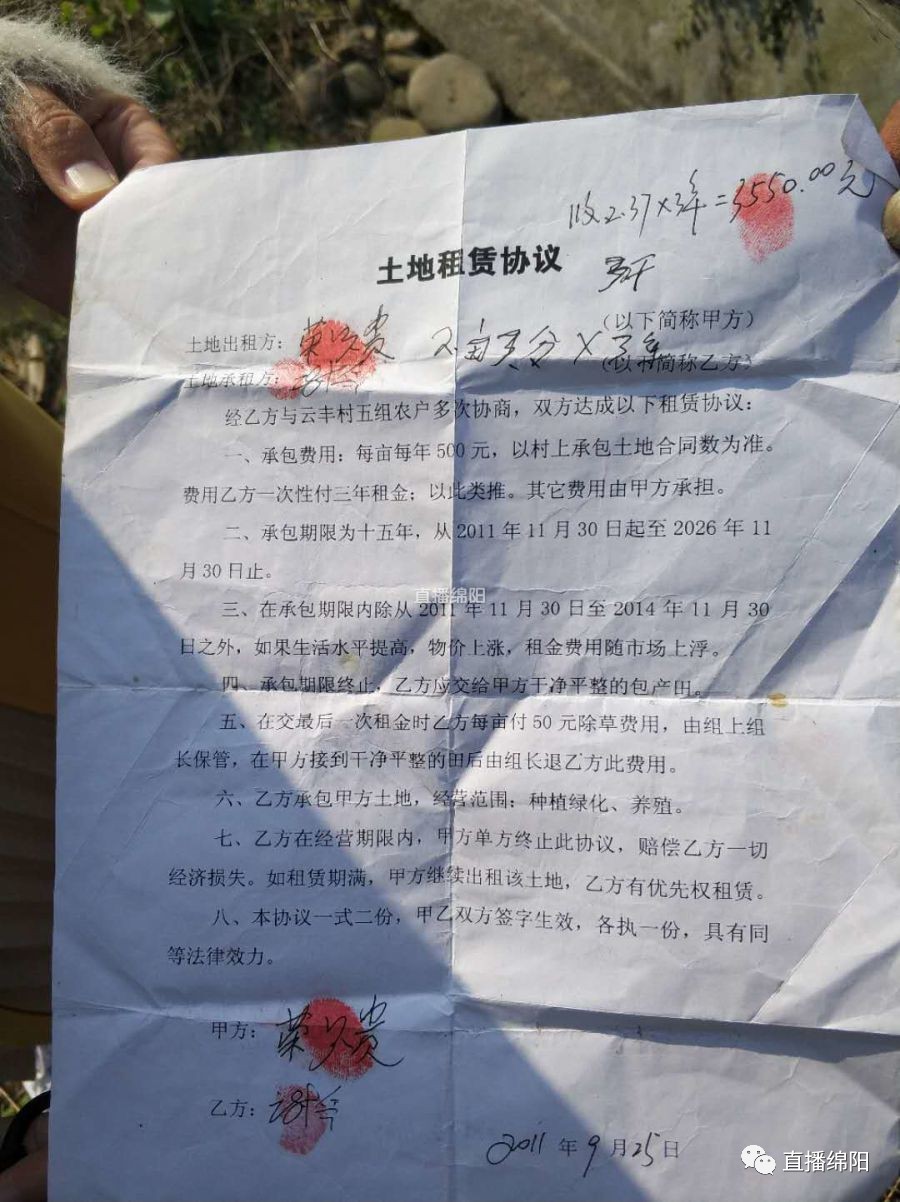 收2.37×3年=3550.00元
土地租赁协议
土地出租方: 荣 贵 (以下简称甲方)
2亩 分 × 3年
土地承租方: (以下简称乙方)
经乙方与云丰村五组农户多次协商，双方达成以下租赁协议：
一、承包费用：每亩每年500元，以村上承包土地合同数为准。
费用乙方一次性付三年租金；以此类推。其它费用由甲方承担。
二、承包期限为十五年，从2011年11月30日起至2026年11
月30日止。
三、在承包期限内除从2011年11月30日至2014年11月30
日之外，如果生活水平提高，物价上涨，租金费用随市场上浮。
四、承包期限终止，乙方应交给甲方干净平整的包产田。
五、在交最后一次租金时乙方每亩付50元除草费用，由组上组
长保管，在甲方接到干净平整的田后由组长退乙方此费用。
六、乙方承包甲方土地，经营范围：种植绿化、养殖。
七、乙方在经营期限内，甲方单方终止此协议，赔偿乙方一切
经济损失。如租赁期满，甲方继续出租该土地，乙方有优先权租赁。
八、本协议一式二份，甲乙双方签字生效，各执一份，具有同
等法律效力。
甲方: 荣 贵
乙方:
2011年9月25日
直播绵阳
直播绵阳